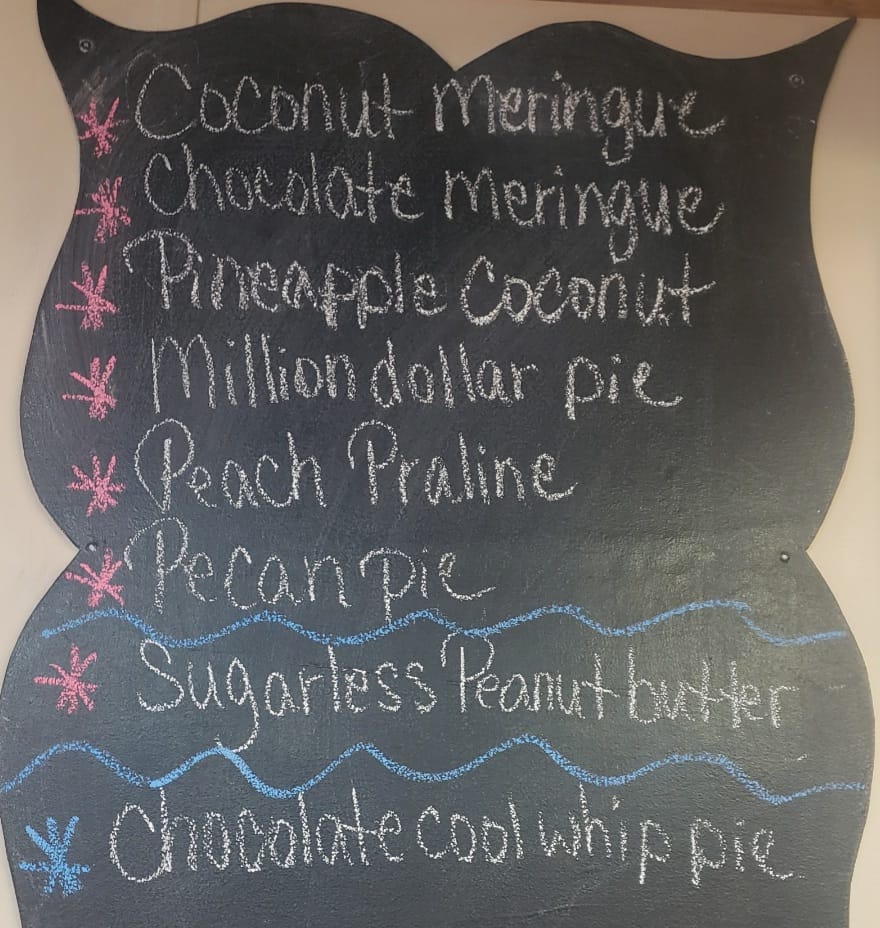 Coconut Meringue
Chocolate Meringue
Pineapple Coconut
Million dollar pie
Peach Praline
Pecan pie
Sugarless Peanut butter
Chocolate cool whip pie